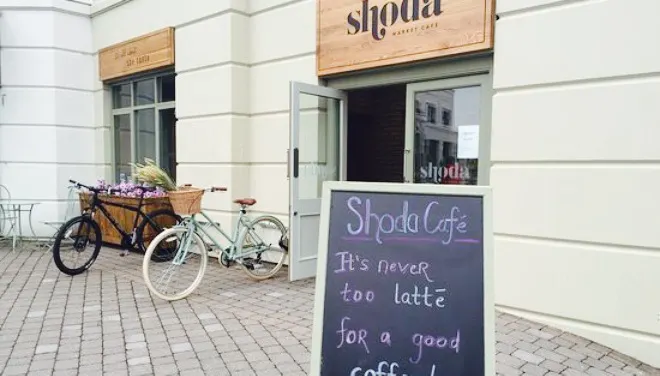 shoda
MARKET CAFÉ
shoda
Shoda Café
It's never
too lattē
for a good
coffee!